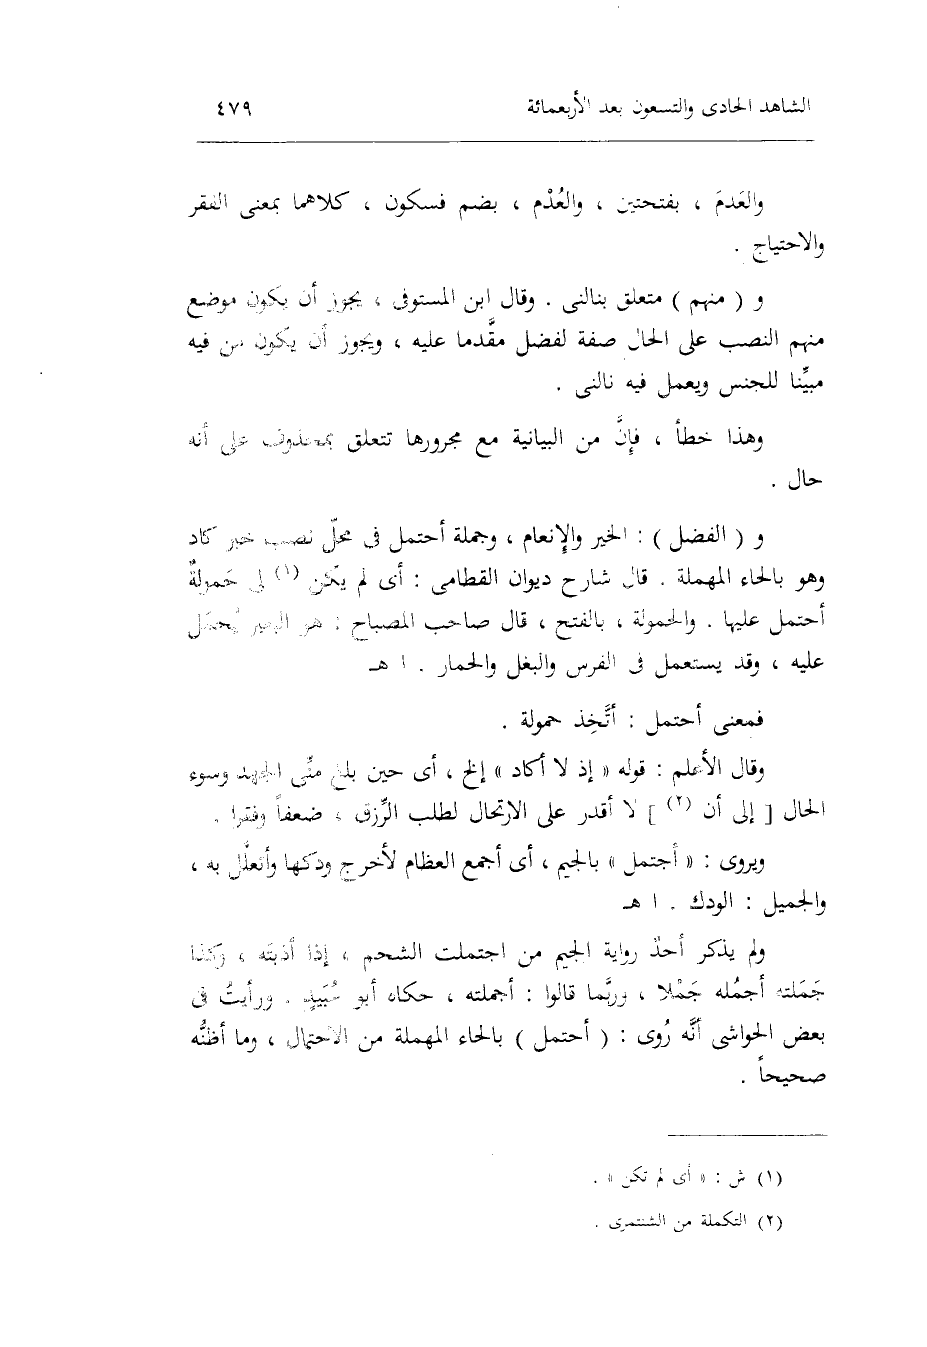 الشاهد الحادى والتسعون بعد الأربعمائة ٤٧٩
والعَدمَ ، بفتحتين ، والعُدْم ، بضم فسكون ، كلاهما بمعنى الفقر
والاحتياج .
و ( منهم ) متعلق بنالنى . وقال ابن المستوفى ، يجوز أن يكون موضع
منهم النصب على الحال صفة لفضل مقَّدما عليه ، ويجوز أن يكون من فيه
مبيِّنا للجنس ويعمل فيه نالنى .
وهذا خطأ ، فإِنَّ من البيانية مع مجرورها تتعلق بمحذوف على أنه
حال .
و ( الفضل ) : الخير والإِنعام ، وجملة أحتمل فى محلّ نصب خبر كاد
وهو بالحاء المهملة . قال شارح ديوان القطامى : أى لم يكن (١) لى حَمولةٌ
أحتمل عليها . والحمولة ، بالفتح ، قال صاحب المصباح : هو البعير يُحمَل
عليه ، وقد يستعمل فى الفرس والبغل والحمار . ا هـ
فمعنى أحتمل : أتَّخِذ حمولة .
وقال الأعلم : قوله « إذ لا أكاد » إلخ ، أى حين بلغ منِّى الجهد وسوء
الحال [ إلى أن (٢) ] لا أقدر على الارتحال لطلب الرِّزق ، ضعفاً وفقرا .
ويروى : « أجتمل » بالجيم ، أى أجمع العظام لأخرج ودكها وأتعلَّل به ،
والجميل : الودك . ا هـ
ولم يذكر أحدٌ رواية الجيم من اجتملت الشحم ، إذا أذبتَه ، وكذا
جَمَلته أجمُله جَمْلا ، وربَّما قالوا : أجملته ، حكاه أبو عُبَيدٍ . ورأيتُ فى
بعض الحواشى أنَّه رُوى : ( أحتمل ) بالحاء المهملة من الاحتمال ، وما أظنُّه
صحيحاً .
(١) ش : « أى لم تكن » .
(٢) التكملة من الشنتمرى .